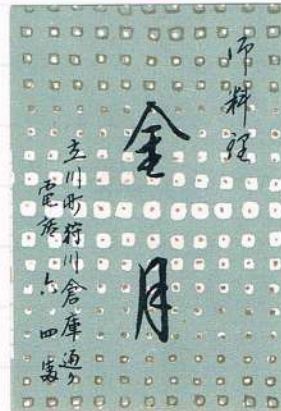 御料理
金月
立川町狩川倉庫通り
電話 六四番